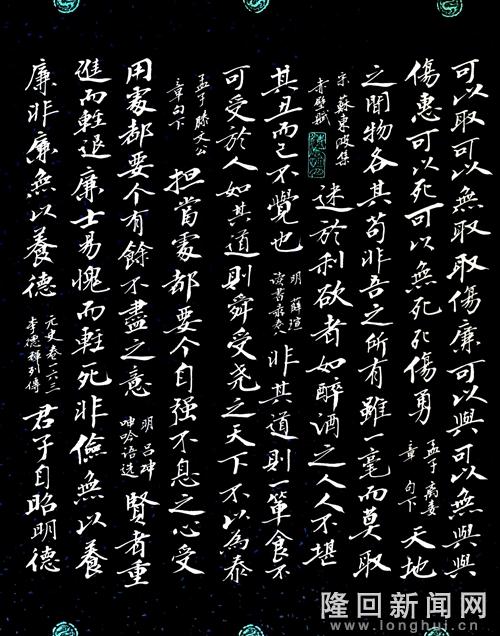 可以取可以無取取傷廉可以與可以無與與
傷惠可以死可以無死死傷勇 孟子 离婁章句下 天地
之間物各其苟非吾之所有雖一毫而莫取
宋蘇東坡集赤壁賦 迷於利欲者如醉酒之人人不堪
其丑而己不覺也 明薛瑄讀書錄卷 非其道則一簞食不
可受於人如其道則舜受尧之天下不以為泰
孟子滕文公章句下 担當處都要个自强不息之心受
用處都要个有餘不盡之意 明吕坤呻吟语选 賢者重
進而輊退廉士易愧而輊死非儉無以養
廉非廉無以養德 元史卷一六三李德輝列傳 君子自昭明德
隆回新闻网
www.longhui.cn